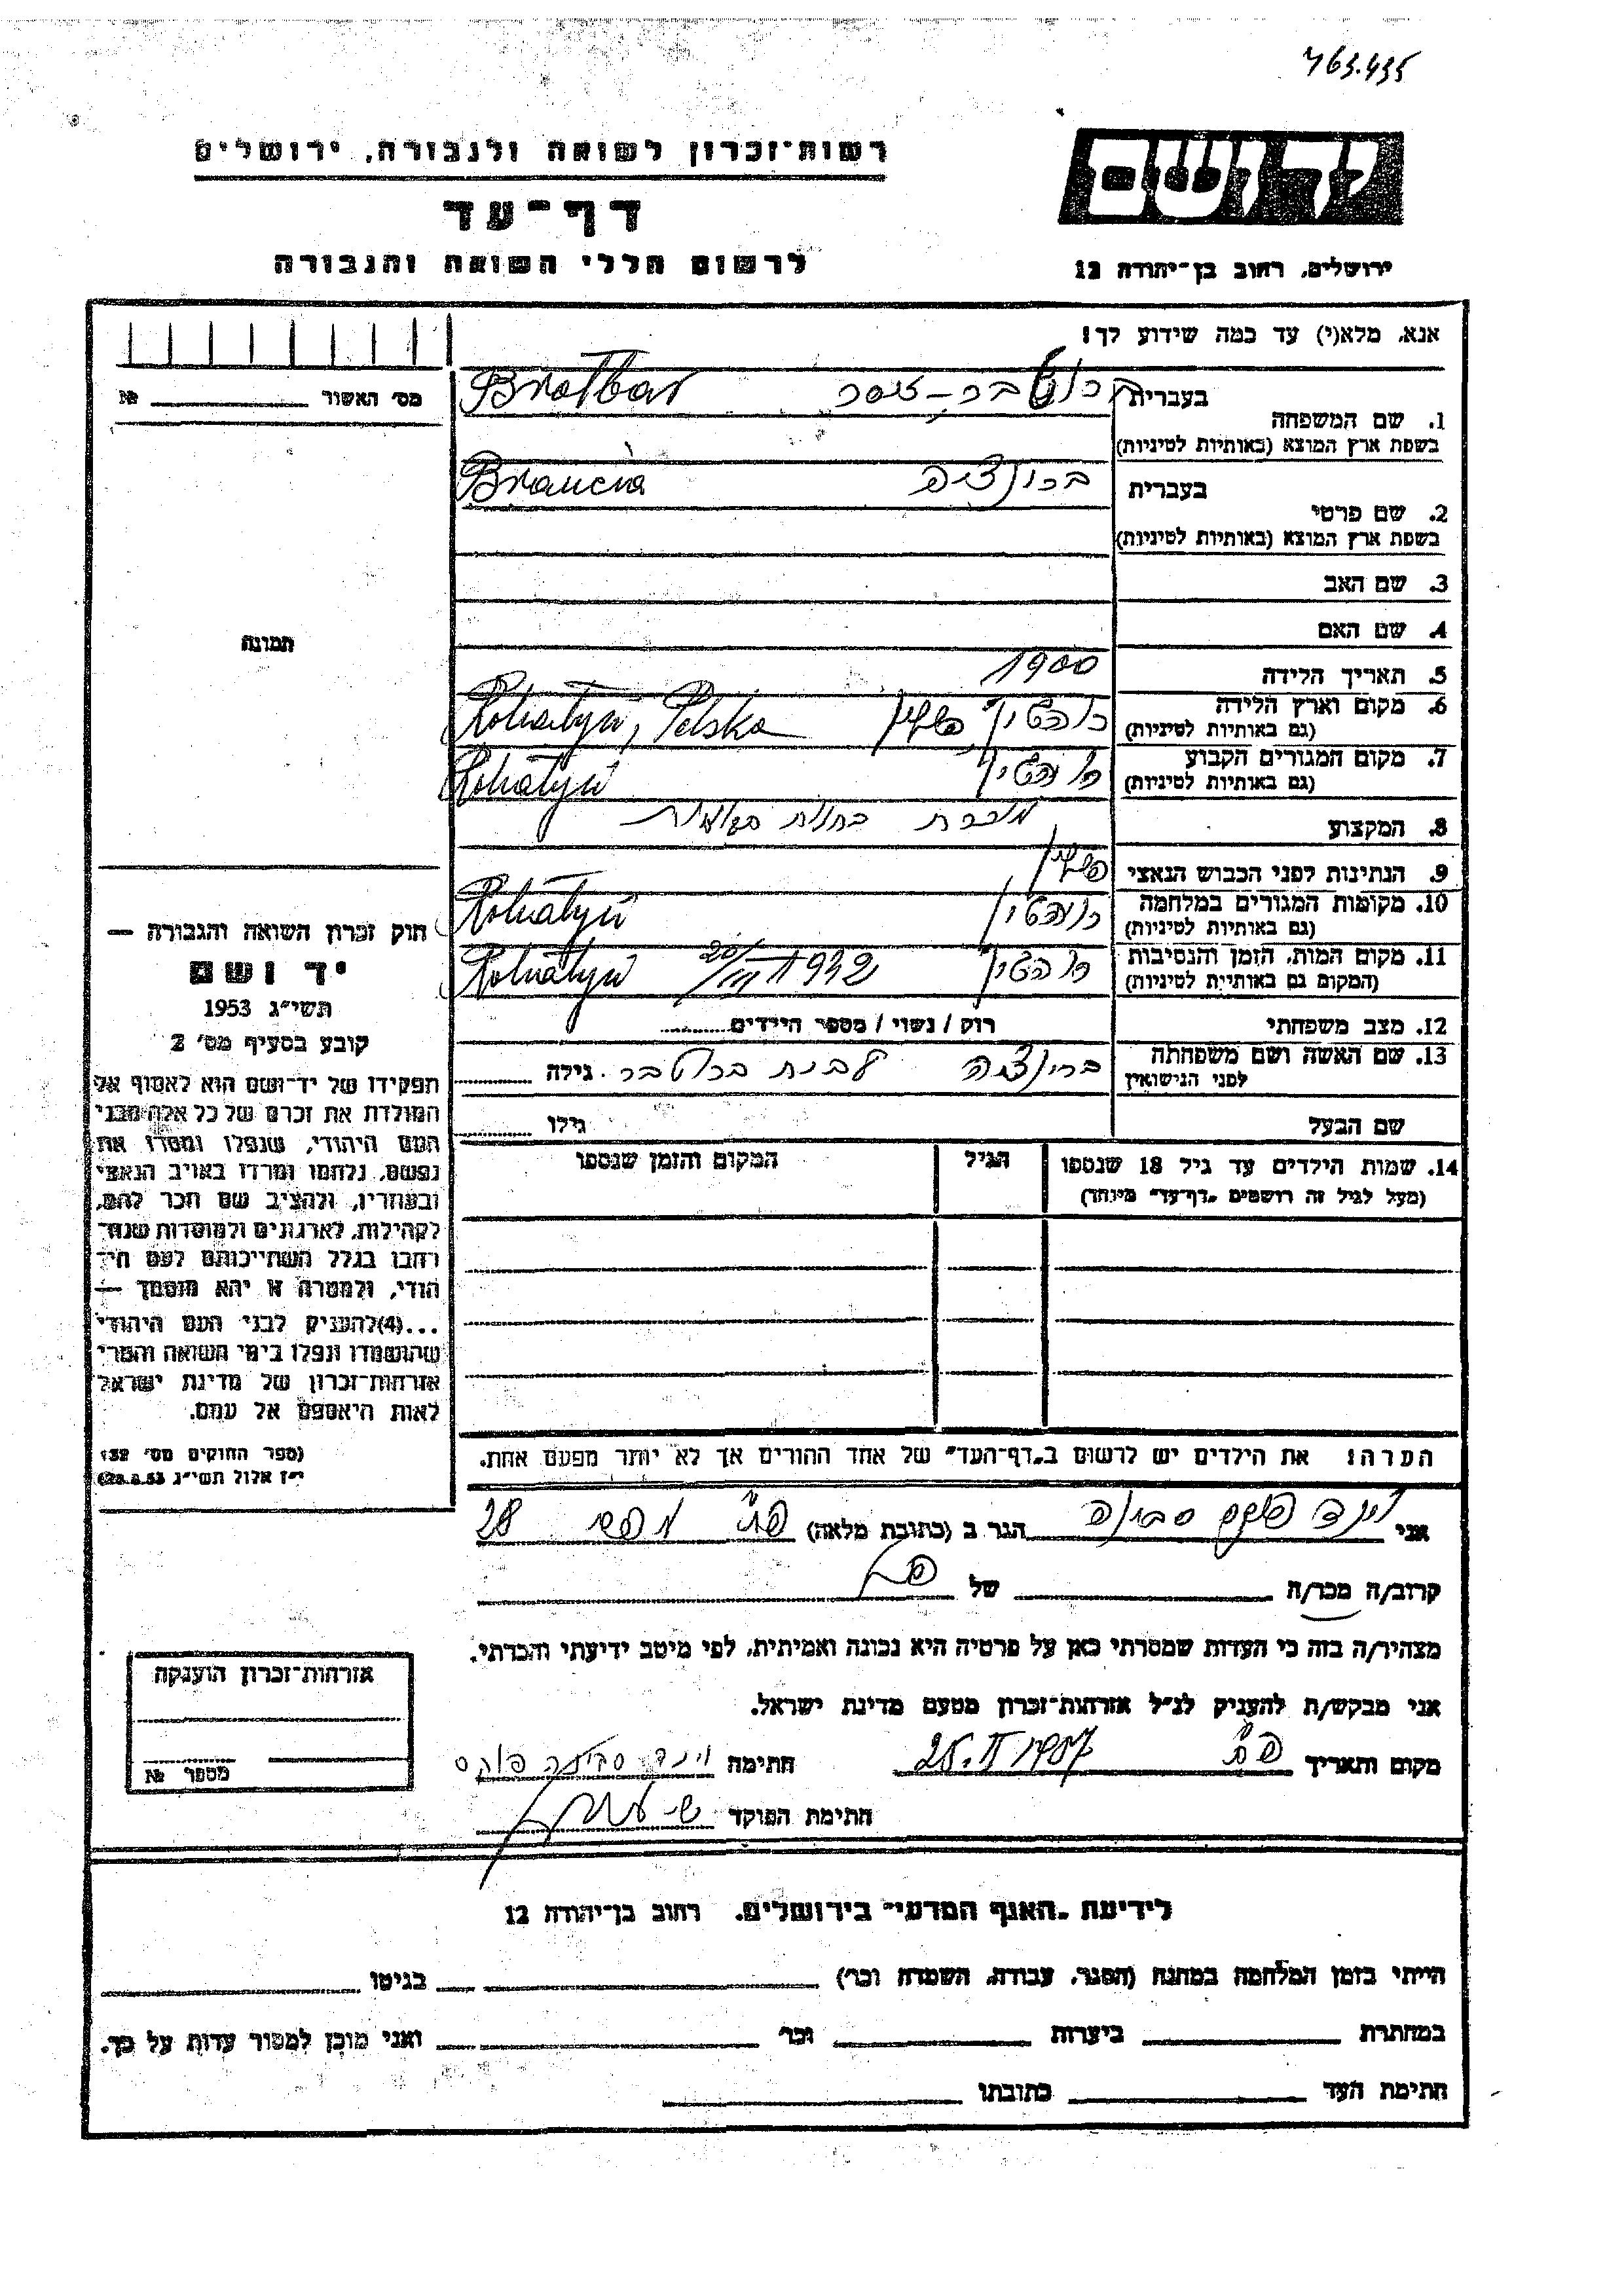 463.435
יד ושם
רשות־זכרון לשואה ולגבורה, ירושלים
דף־עד
לרשום חללי השואה והגבורה
ירושלים, רחוב בן־יהודה 12
אנא, מלא(י) עד כמה שידוע לך!
מס׳ האשור № 
1. שם המשפחה
בעברית ברוטבר
בשפת ארץ המוצא (באותיות לטיניות) Brotbar
2. שם פרטי
בעברית ברונציה
בשפת ארץ המוצא (באותיות לטיניות) Broncia
3. שם האב
4. שם האם
5. תאריך הלידה 1900
6. מקום וארץ הלידה רוהטין, פולין Rohatyń, Polska
(גם באותיות לטיניות)
7. מקום המגורים הקבוע רוהטין Rohatyń
(גם באותיות לטיניות)
8. המקצוע מוכרת בחנות
9. הנתינות לפני הכבוש הנאצי פולין
10. מקומות המגורים במלחמה רוהטין Rohatyń
(גם באותיות לטיניות)
11. מקום המות, הזמן והנסיבות רוהטין 20/III 1942 Rohatyń
(המקום גם באותיות לטיניות)
12. מצב משפחתי רוק / נשוי / מספר הילדים
13. שם האשה ושם משפחתה ברונציה לבית ברוטבר גילה
לפני הנישואין
שם הבעל גילו
14. שמות הילדים עד גיל 18 שנספו הגיל המקום והזמן שנספו
(מעל לגיל זה רושמים „דף־עד” מיוחד)
הערה: את הילדים יש לרשום ב„דף־העד” של אחד ההורים אך לא יותר מפעם אחת.
תמונה
חוק זכרון השואה והגבורה —
יד ושם
תשי״ג 1953
קובע בסעיף מס׳ 2
תפקידו של יד־ושם הוא לאסוף אל
המולדת את זכרם של כל אלה מבני
העם היהודי, שנפלו ומסרו את
נפשם, נלחמו ומרדו באויב הנאצי
ובעוזריו, ולהציב שם וזכר להם,
לקהילות, לארגונים ולמוסדות שנח־
רבו בגלל השתייכותם לעם הי־
הודי, ולמטרה זו יהא מוסמך —
...(4)להעניק לבני העם היהודי
שהושמדו ונפלו בימי השואה והמרי
אזרחות־זכרון של מדינת ישראל
לאות היאספם אל עמם.
(ספר החוקים מס׳ 132
י״ז אלול תשי״ג 28.8.53)
אני וינד פוקס סבינה הגר ב (כתובת מלאה) פ״ת 28
קרוב/ה מכר/ה של
מצהיר/ה בזה כי העדות שמסרתי כאן על פרטיה היא נכונה ואמיתית, לפי מיטב ידיעתי והכרתי.
אני מבקש/ת להעניק לנ״ל אזרחות־זכרון מטעם מדינת ישראל.
מקום ותאריך פ״ת 25.II 1957 חתימה וינד סבינה פוקס
חתימת הפוקד
אזרחות־זכרון הוענקה
מספר №
לידיעת „האגף המדעי” בירושלים, רחוב בן־יהודה 12
הייתי בזמן המלחמה במחנה (הסגר, עבודה, השמדה וכו׳) בגיטו
במחתרת ביערות וכו׳ ואני מוכן למסור עדות על כך.
חתימת העד כתובתו